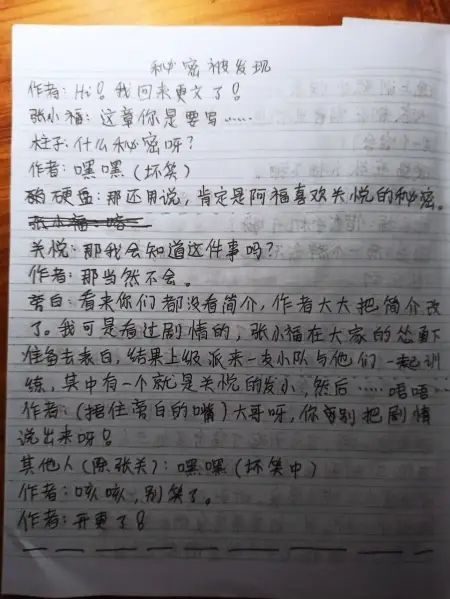 秘密被发现
作者：Hi！我回来更文了！
张小福：这章你是要写……
柱子：什么秘密呀？
作者：嘿嘿（坏笑）
硬盘：那还用说，肯定是阿福喜欢关悦的秘密。
张小福：啥
关悦：那我会知道这件事吗？
作者：那当然不会。
旁白：看来你们都没看简介，作者大大把简介改
了。我可是看过剧情的，张小福在大家的怂恿下
准备去表白，结果上级派来一支小队与他们一起训
练，其中有一个就是关悦的发小，然后……唔唔
作者：（捂住旁白的嘴）大哥呀，你别把剧情
说出来呀！
其他人（除张关）：嘿嘿（坏笑中）
作者：咳咳，别笑了。
作者：开更了！